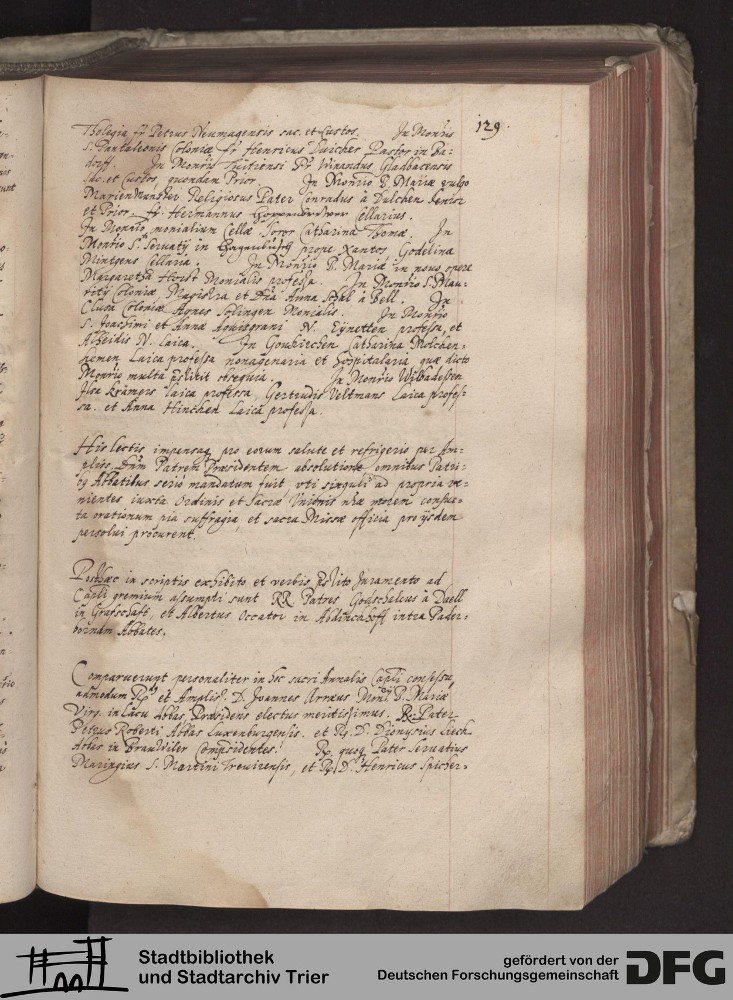 129.
Tholegia fr Petrus Neumagensis sac. et Custos. In Monrio
S. Pantaleonis Coloniæ fr Henricus Pastor in Ba-
dorff. In Monrio Tuitiensi Pr Winandus Gladbacensis
sac. et Custos, quondam Prior. In Monrio B. Mariæ vulgo
Marienmunster Religiosus Pater Conradus à Dulchen senior
et Prior. fr. Hermannus Cellarius.
In Monrio monialium Cellæ Soror Catharina Thomæ. In
Monrio S. Servatÿ in prope Xantos Godelina
Mintgens Cellaria. In Monrio B. Mariæ in novo opere
Margaretha Horst Monialis professa. In Monrio S. Mau-
ritÿ Coloniæ, Magistra et Dna Anna à Bell. In
Clusa Coloniæ Agnes Solingen Monialis. In Monrio
S. Joachimi et Annæ N. Eynetten professa, et
Alheidis N. Laica. In Catharina Molchen-
Laica professa nonagenaria et Hospitalaria quæ dicto
Monrio multa pstitit obsequia. In Monrio Wilbadessen
Ilsa Krämers laica professa, Gertrudis Veltmans Laica profes-
sa. et Anna Hinchen Laica professa.
His lectis impensaq pro eorum salute et refrigerio per Am-
pliss. Dnm Patrem Præsidentem absolutione omnibus Patri-
bq Abbatibus serio mandatum fuit vti singuli ad propria ve-
nientes iuxta Ordinis et Sacræ Vnitnis nræ morem consue-
ta orationum pia suffragia, et sacra Missæ officia pro ÿsdem
persolui procurent.
Posthæc in scriptis exhibito et verbis pstito Juramento ad
Capli gremium assumpti sunt RR Patres Godschalcus à Daell
in Grafschaft, et Albertus Occator in Abdinckhoff intra Pader-
bornam Abbates.
Comparuerunt personaliter in hoc sacri Annalis Capli consessu,
admodum Rds et Ampliss. D. Joannes Arræus Monrij B. Mariæ
Virg. in Lacu Abbas Præsidens electus meritissimus. R. Pater
Petrus Roberti Abbas Luxemburgensis. et Rd. D. Dionysius Liech
Abbas in Brauwiler Compsidentes. R. quoq Pater Servatius
Maringius S. Martini Trevirensis, et Rd. D. Henricus Spicher-
Stadtbibliothek
und Stadtarchiv Trier
gefördert von der
Deutschen Forschungsgemeinschaft
DFG